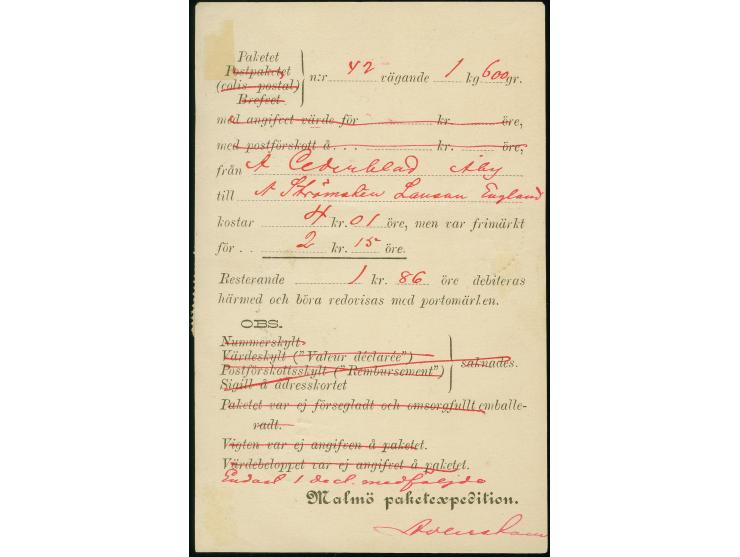 Paketet
Postpaketet
(colis postal)
Brefvet
n:r 42 vägande 1 kg 600 gr.
med angifvet värde för kr. öre,
med postförskott å . . . kr. öre,
från A Cederblad Åby
till A Strömsten Lansan England
kostar 4 kr. 01 öre, men var frimärkt
för . . 2 kr. 15 öre.
Resterande 1 kr. 86 öre debiteras
härmed och böra redovisas med portomärken.
OBS.
Nummerskylt
Värdeskylt ("Valeur déclarée")
Postförskottsskylt ("Rembursement")
Sigill å adresskortet
saknades.
Paketet var ej försegladt och omsorgfullt emballe-
radt.
Vigten var ej angifven å paketet.
Värdebeloppet var ej angifvet å paketet.
Endast 1 decl. medföljde
Malmö paketexpedition.